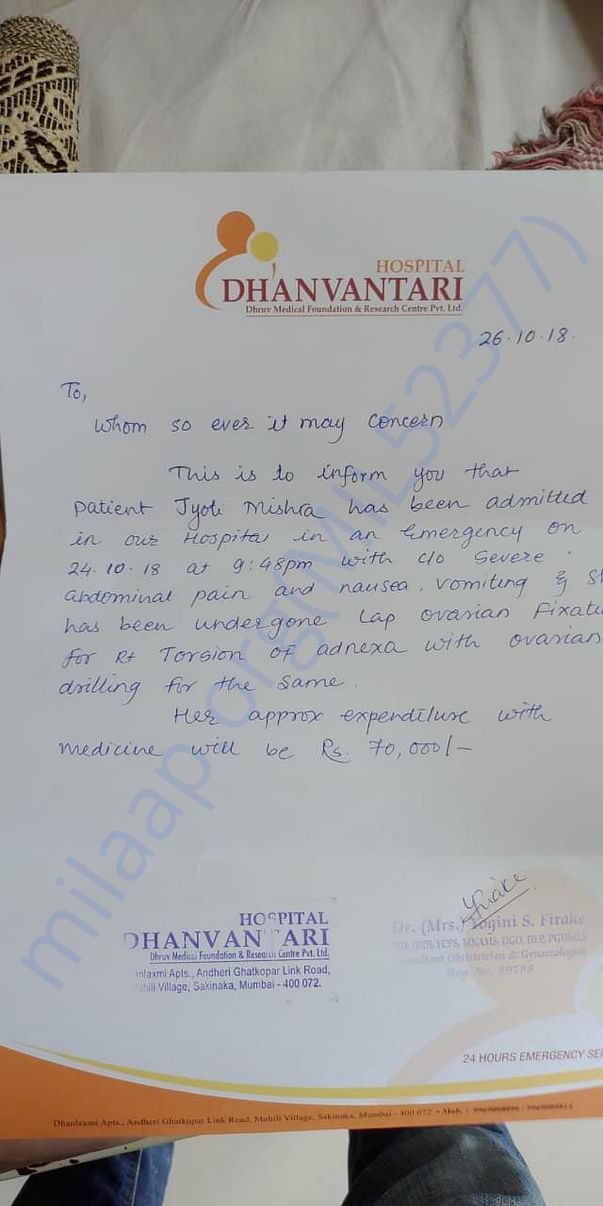 HOSPITAL
DHANVANTARI
Dhruv Medical Foundation & Research Centre Pvt. Ltd.
26.10.18.
To,
Whom so ever it may Concern
This is to inform you that
patient Jyoti Mishra has been admitted
in our Hospital in an Emergency on
24.10.18 at 9:48pm with c/o Severe
abdominal pain and nausea, vomiting &
has been undergone Lap ovarian
for Rt Torsion of adnexa with ovarian
drilling for the same.
Her approx expenditure with
medicine will be Rs. 70,000/-
milaap.org(MIL52377)
HOSPITAL
DHANVANTARI
Dhruv Medical Foundation & Research Centre Pvt. Ltd.
Apts., Andheri Ghatkopar Link Road,
Village, Sakinaka, Mumbai - 400 072.
Dr. (Mrs.) Yogini S. Firake
DNB, FCPS, MNAMS, DGO, DFP,
Obstetrician & Gynaecologist
Reg. No.
24 HOURS EMERGENCY
Dhanlaxmi Apts., Andheri Ghatkopar Link Road, Mohili Village, Sakinaka, Mumbai - 400 072. • Mob. :